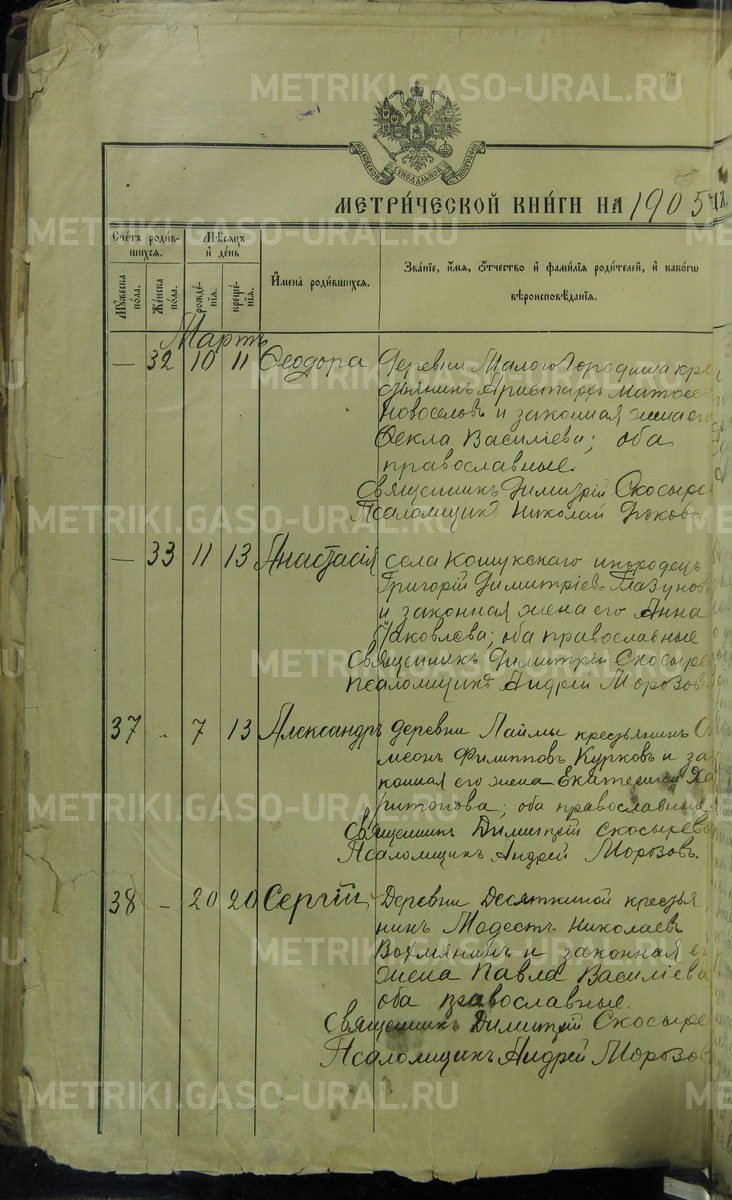 METRIKI.GASO-URAL.RU
МОСКОВСКОЙ СѴНОДАЛЬНОЙ ТИПОГРАФІИ
МЕТРИ́ЧЕСКОЙ КНИ́ГИ НА 1905
Сче́тъ роди́вшихся.
Мѣсяцъ и де́нь
Имена̀ роди́вшихся.
Зва́нїе, и́мя, ѻ́тчество и фами́лїя роди́телей, и како́гѡ
вѣроисповѣ́данїя.
Му́жеска по́ла.
Же́нска по́ла.
рожде́нїя.
креще́нїя.
Мартъ
— 32 10 11 Ѳеодора Деревни Малого Городища кре
стьянинъ Аристархъ Матѳеев
Новоселовъ и законная жена его
Ѳекла Василіева; оба
православные.
Священникъ Димитрій Скосыре
Псаломщикъ Николай
— 33 11 13 Анастасія села Кошукскаго инородецъ
Григорій Димитріевъ Тазуновъ
и законная жена его Анна
Яковлева; оба православные
Священникъ Димитрій Скосыре
псаломщикъ Андрей Морозов
37 „ 7 13 Александръ деревни Лаймы крестьянинъ Си
меонъ Филипповъ Курковъ и за
конная его жена Екатерина Ха
ритонова; оба православные.
Священникъ Димитрій Скосыревъ
Псаломщикъ Андрей Морозовъ.
38 — 20 20 Сергій Деревни Десяткиной крестья
нинъ Модестъ Николаевъ
Вохмянинъ и законная ег
жена Павла Василіева
оба православные.
Священникъ Димитрій Скосыре
Псаломщикъ Андрей Морозов